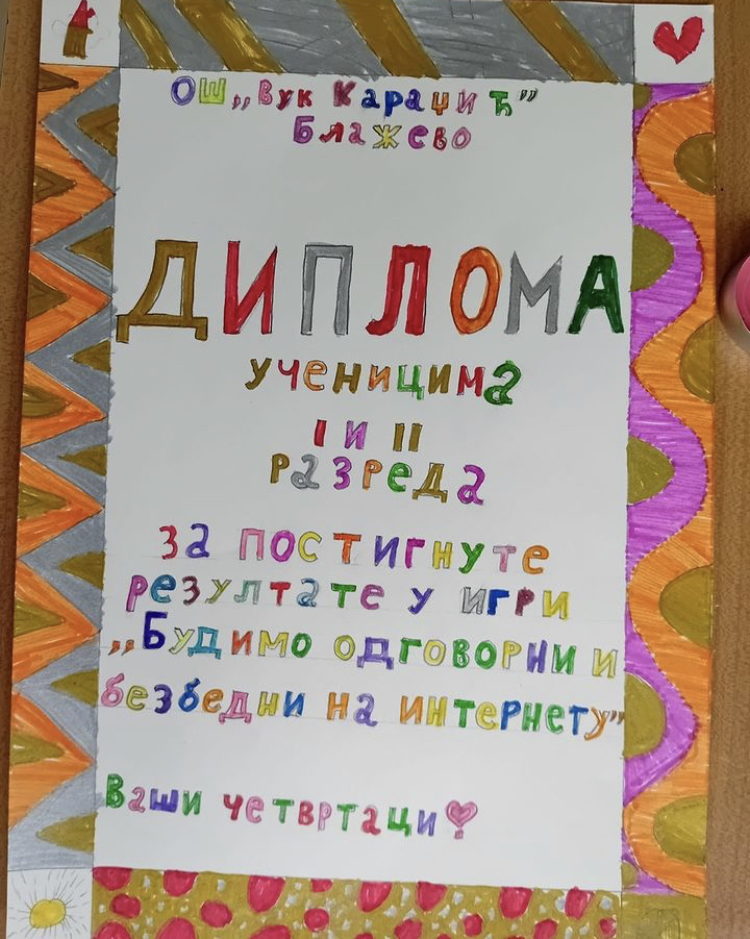 ОШ „Вук Караџић”
Блажево
ДИПЛОМА
ученицима
I и II
разреда
за постигнуте
резултате у игри
„Будимо одговорни и
безбедни на интернету”
Ваши четвртаци